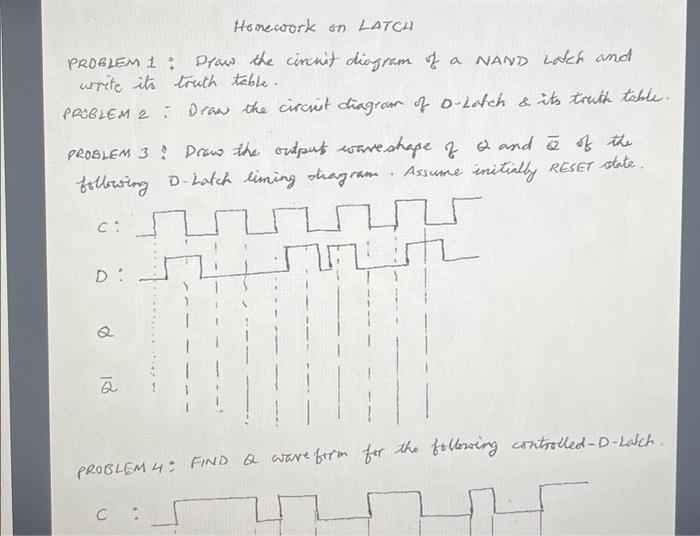 Homework on LATCH
PROBLEM 1 : Draw the circuit diagram of a NAND Latch and
write its truth table.
PROBLEM 2 : Draw the circuit diagram of D-Latch & its truth table.
PROBLEM 3 : Draw the output waveshape of Q and Q̅ of the
following D-Latch timing diagram. Assume initially RESET state.
C :
D :
Q
Q̅
PROBLEM 4 : FIND Q waveform for the following controlled-D-Latch.
C :